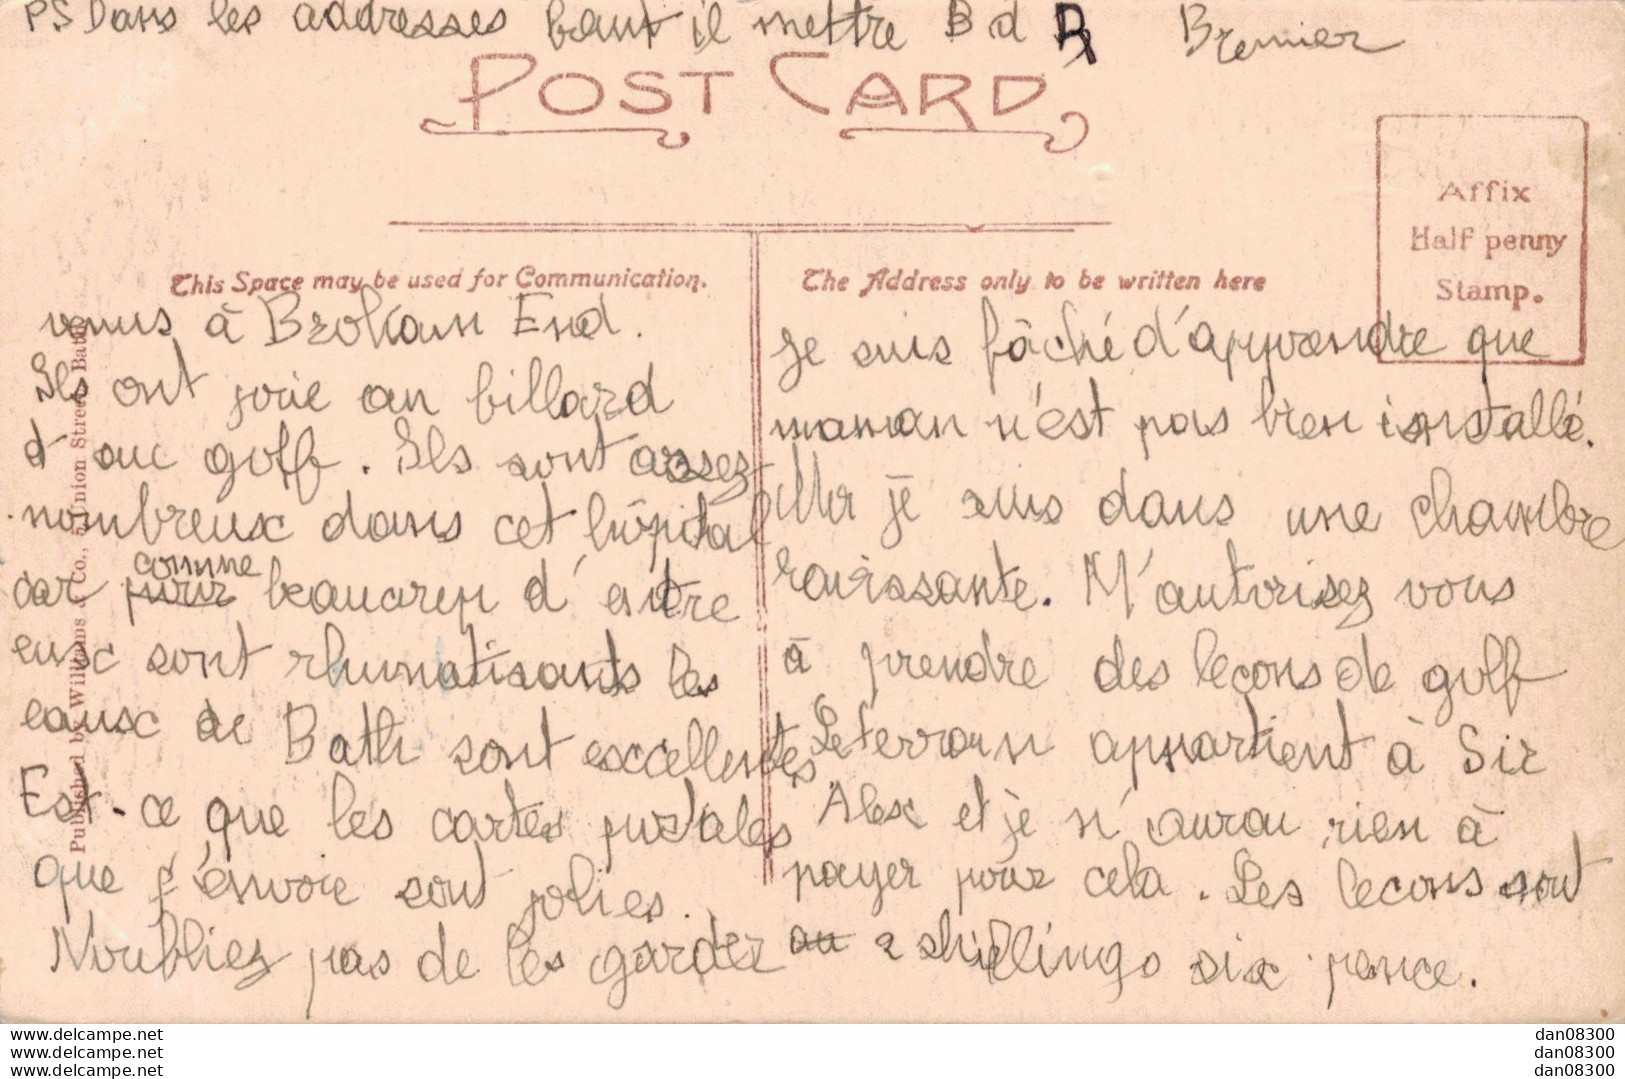 PS Dans les addresses faut il mettre B d B Bremier
POST CARD
Affix
Half penny
Stamp.
This Space may be used for Communication.
The Address only to be written here
venus à Brokam End.
Ils ont joie an billard
et auc golf. Ils sont assez
nombreux dans cet hôpital
comme
car pour beaucoup d'entre
eusc sont rhumatisants les
eausc de Bath sont escellentes
Est-ce que les cartes postales
que j'envoie sont jolies.
N'oubliez pas de les garder
Je suis fâché d'apprendre que
maman n'est pas bien installé.
Moi je suis dans une chambre
ravissante. M'autorisez vous
à prendre des leçons de golf
Le terrain appartient à Sir
Alex et je n'aurai rien à
payer pour cela. Les lecons sont
au 2 shillings six pence.
Published by Williams & Co., 5, Union Street, Bath.
www.delcampe.net
www.delcampe.net
www.delcampe.net
dan08300
dan08300
dan08300